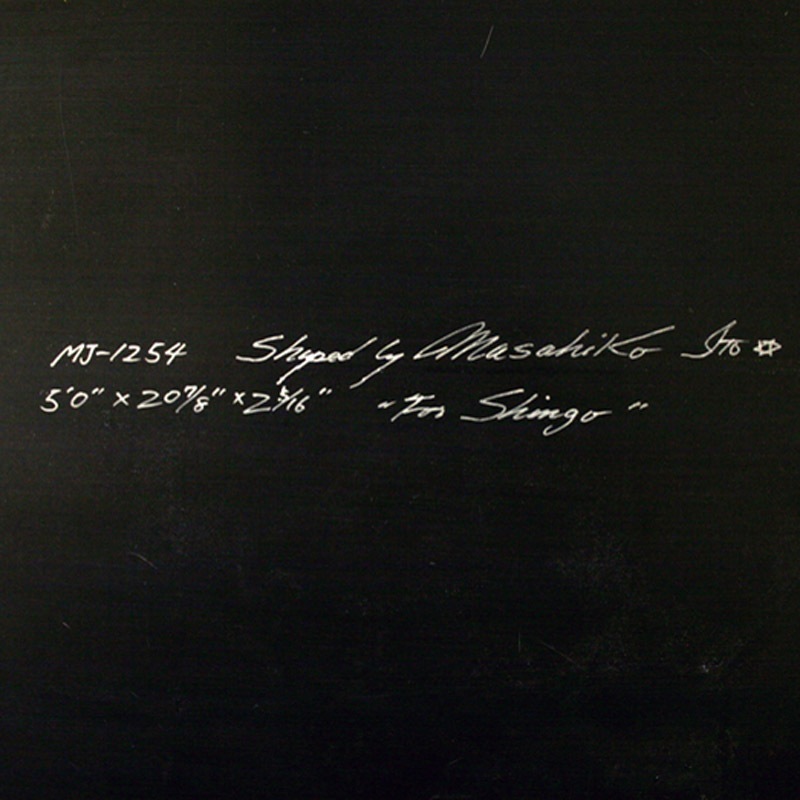 MJ-1254 Shaped by Masahiko Ito
5'0" × 20 7/8" × 2 5/16" "For Shingo"